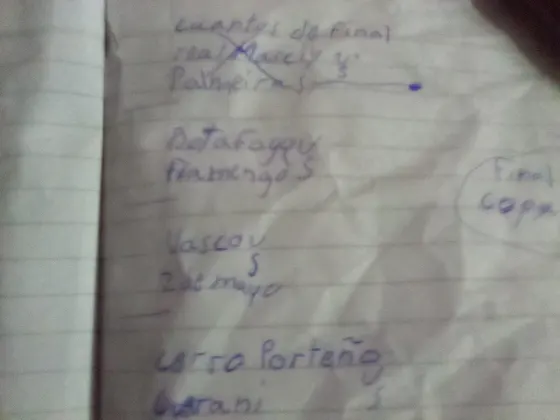 cuartos de Final
real Marcij v
s
Palmeiras
Botafogo v
Flamengo s
Vasco v
s
2 de mayo
cerro Porteño
Guarani s
Final
copa